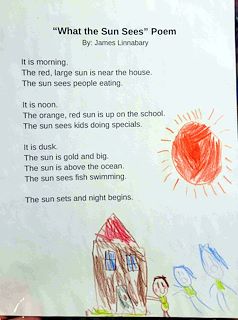 “What the Sun Sees” Poem
By: James Linnabary
It is morning.
The red, large sun is near the house.
The sun sees people eating.
It is noon.
The orange, red sun is up on the school.
The sun sees kids doing specials.
It is dusk.
The sun is gold and big.
The sun is above the ocean.
The sun sees fish swimming.
The sun sets and night begins.